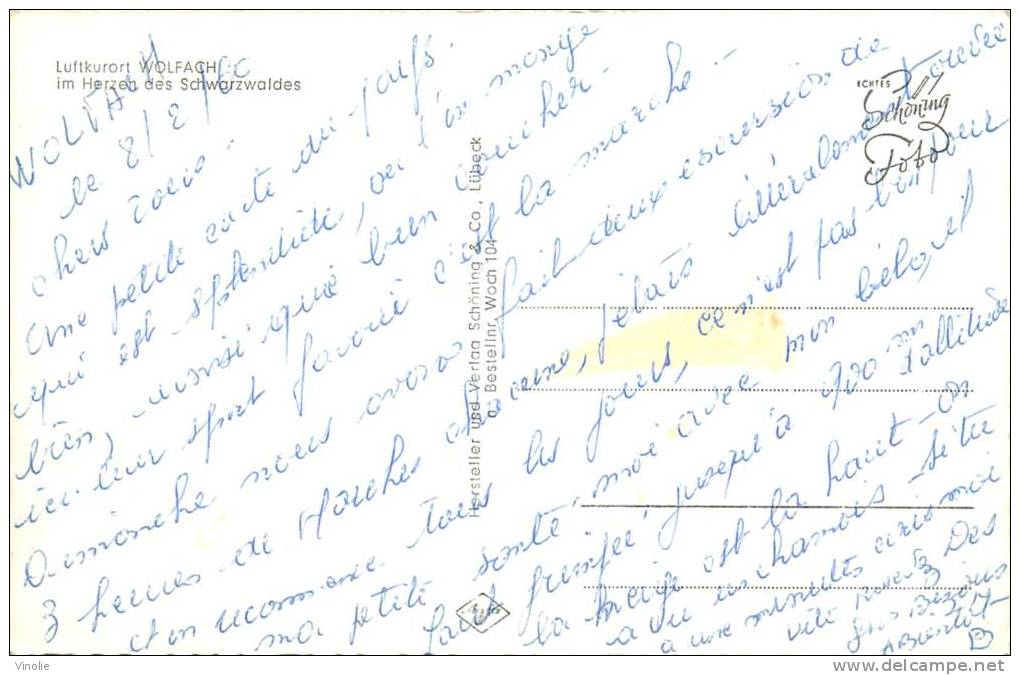 Luftkurort WOLFACH
im Herzen des Schwarzwaldes
ECHTES
Schöning
Foto
Hersteller und Verlag Schöning & Co., Lübeck
Bestellnr. Woch 104
WOLFACH
le 8/2/60
chers tous!
une petite carte du pays
qui est splendide, on l'on mange
bien, ainsi que bien coucher -
ici leur sport favori c'est la marche -
Dimanche nous avons fait deux excursions de
3 heures de Marches chacune, j'étais littéralement crevée
et on recommence tous les jours, ce n'est pas trop pour
ma petite santé, moi avec mon vélo, il
faut grimper jusqu'à 900 m d'altitude
la neige est là haut - on
a vu un chamois - si tu
a une minute écris moi
vite Des
Gros Bisous
A Bientôt
Vinolie
www.delcampe.net